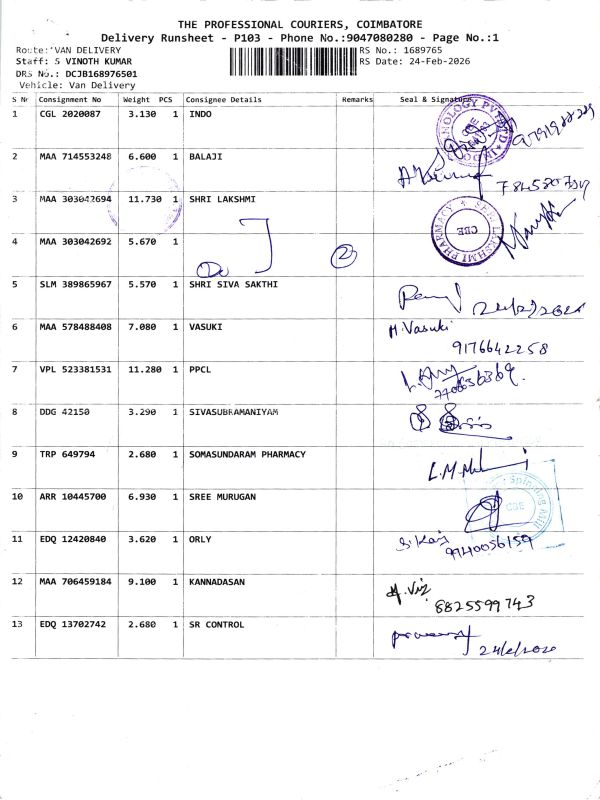 THE PROFESSIONAL COURIERS, COIMBATORE
Delivery Runsheet - P103 - Phone No.:9047080280 - Page No.:1
Route: VAN DELIVERY
RS No.: 1689765
Staff: S VINOTH KUMAR
RS Date: 24-Feb-2026
DRS No.: DCJB168976501
Vehicle: Van Delivery
S Nr Consignment No Weight PCS Consignee Details Remarks Seal & Signature
1 CGL 2020087 3.130 1 INDO
2 MAA 714553248 6.600 1 BALAJI
3 MAA 303042694 11.730 1 SHRI LAKSHMI
SRI LAKSHMI PHARMACY CBE
4 MAA 303042692 5.670 1
2
5 SLM 389865967 5.570 1 SHRI SIVA SAKTHI
6 MAA 578488408 7.080 1 VASUKI M.Vasuki
9176642258
7 VPL 523381531 11.280 1 PPCL
8 DDG 42150 3.290 1 SIVASUBRAMANIYAM
9 TRP 649794 2.680 1 SOMASUNDARAM PHARMACY
10 ARR 10445700 6.930 1 SREE MURUGAN
Spinning Mill
CBE
11 EDQ 12420840 3.620 1 ORLY
9940056159
12 MAA 706459184 9.100 1 KANNADASAN
8825599743
13 EDQ 13702742 2.680 1 SR CONTROL